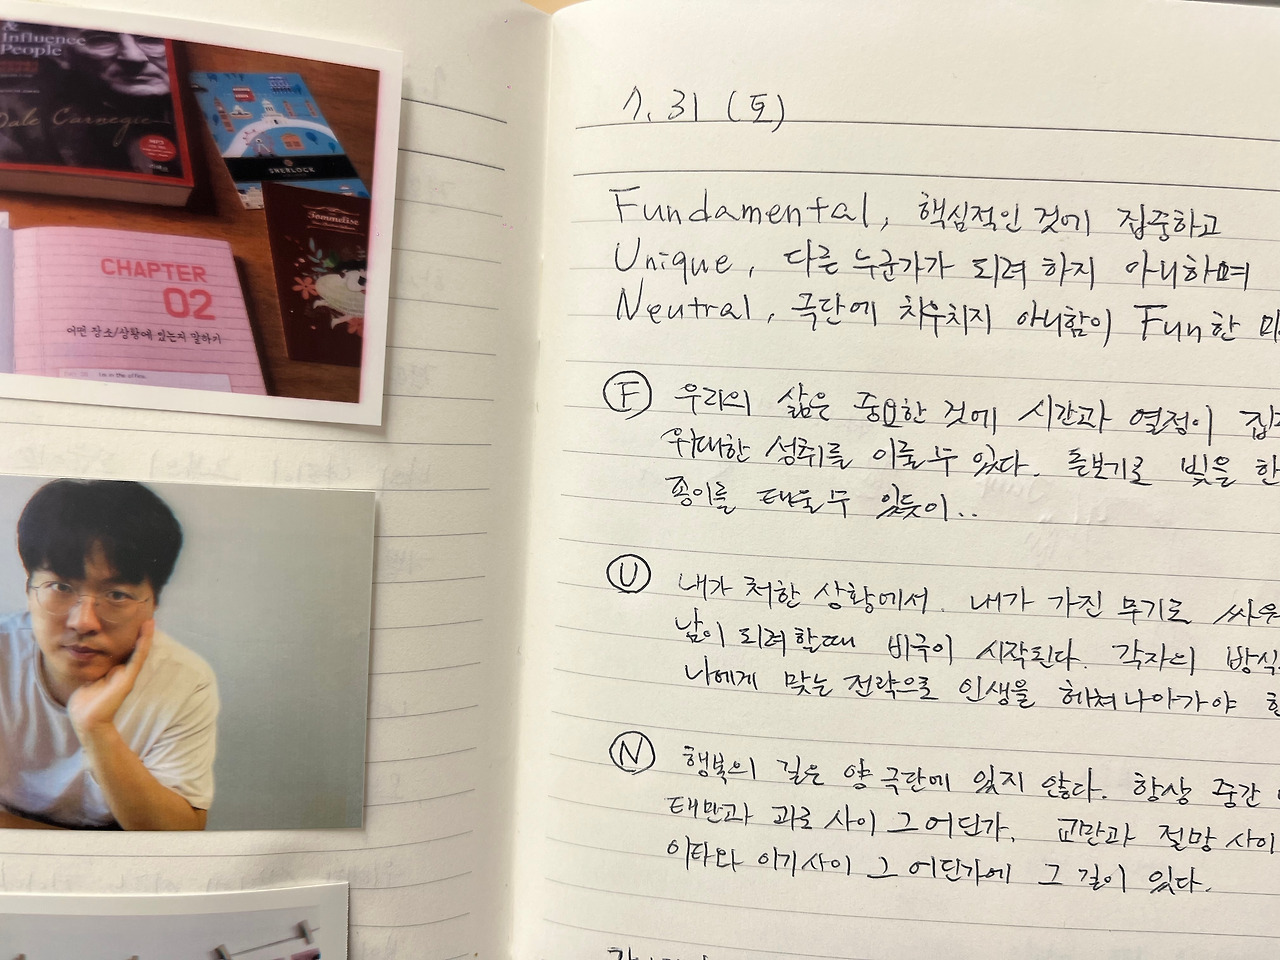 & Influence
People
Dale Carnegie
SHERLOCK
Sommelise
CHAPTER
02
어떤 장소/상황에 있는지 말하기
I'm in the office.
1. 31 (토)
Fundamental, 핵심적인 것에 집중하고
Unique, 다른 누군가가 되려 하지 아니하며
Neutral, 극단에 치우치지 아니함이 Fun한
F 우리의 삶은 중요한 것에 시간과 열정이
위대한 성취를 이룰 수 있다. 돋보기로 빛을 한
종이를 태울 수 있듯이..
U 내가 처한 상황에서. 내가 가진 무기로 싸워
남이 되려 할때 비극이 시작된다. 각자의 방식
나에게 맞는 전략으로 인생을 헤쳐나아가야
N 행복의 길은 양 극단에 있지 않다. 항상 중간
태만과 과로 사이 그 어딘가, 교만과 절망 사이
이타와 이기사이 그 어딘가에 그 길이 있다.